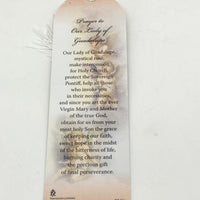 Prayer to
Our Lady of
Guadalupe
Our Lady of Guadalupe,
mystical rose,
make intercession
for Holy Church,
protect the Sovereign
Pontiff, help all those
who invoke you
in their necessities,
and since you are the ever
Virgin Mary and Mother
of the true God,
obtain for us from your
most holy Son the grace
of keeping our faith,
sweet hope in the midst
of the bitterness of life,
burning charity and
the precious gift
of final perseverance.